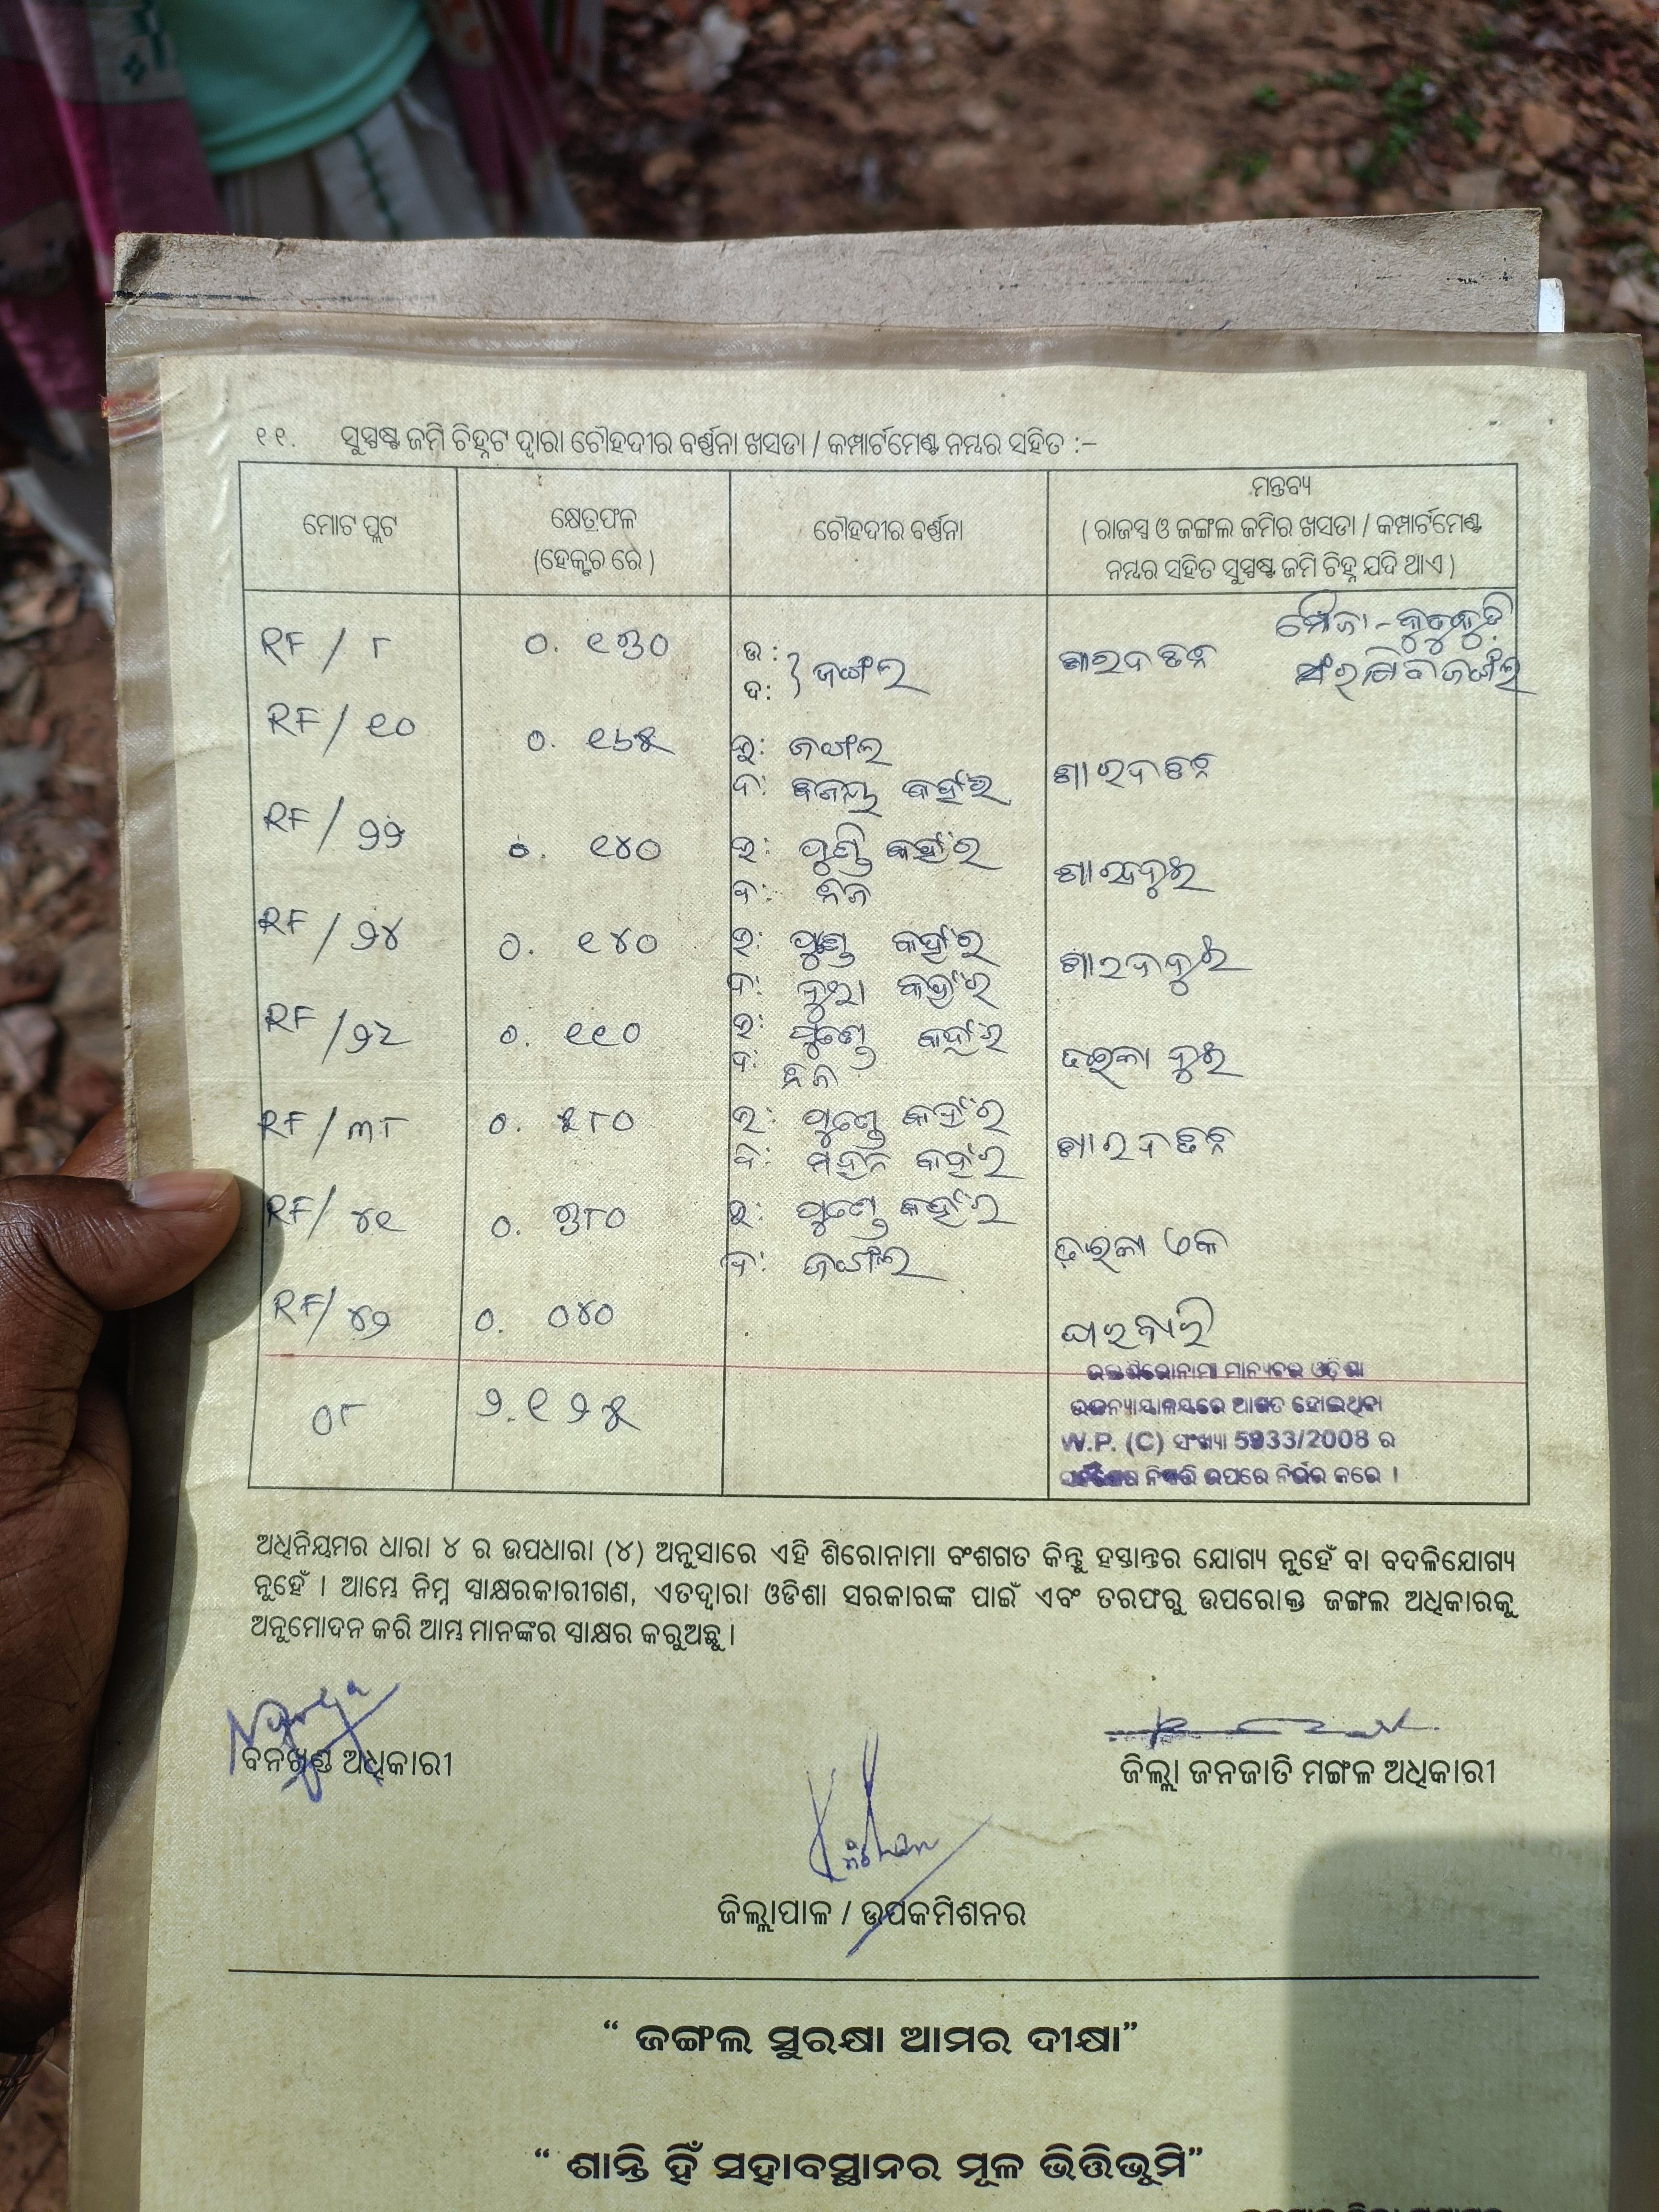 ୧୧. ସୁସ୍ପଷ୍ଟ ଜମି ଚିହ୍ନଟ ଦ୍ୱାରା ଚୌହଦୀର ବର୍ଣ୍ଣନା ଖସଡା / କମ୍ପାର୍ଟମେଣ୍ଟ ନମ୍ବର ସହିତ :–
ମୋଟ ପ୍ଲଟ
କ୍ଷେତ୍ରଫଳ
(ହେକ୍ଟର ରେ)
ଚୌହଦୀର ବର୍ଣ୍ଣନା
ମନ୍ତବ୍ୟ
( ରାଜସ୍ୱ ଓ ଜଙ୍ଗଲ ଜମିର ଖସଡା / କମ୍ପାର୍ଟମେଣ୍ଟ
ନମ୍ବର ସହିତ ସୁସ୍ପଷ୍ଟ ଜମି ଚିହ୍ନ ଯଦି ଥାଏ )
ମୌଜା -
ଜଙ୍ଗଲ
RF / ୮ ୦. ୧୩୦ ଉ: ଦ: } ଜଙ୍ଗଲ ଶାରଦ ତିନ
RF / ୧୦ ୦. ୧୬୫ ଉ: ଜଙ୍ଗଲ ଶାରଦ ତିନ
ଦ: କହଁର
RF / ୨୨ ୦. ୧୪୦ ଉ: କହଁର ଶାରଦ ଦୁଇ
ଦ: ନିଜ
RF / ୨୪ ୦. ୧୪୦ ଉ: କହଁର ଶାରଦ ଦୁଇ
ଦ: କହଁର
RF / ୨୨ ୦. ୧୧୦ ଉ: କହଁର ଦୁଇ
ଦ: ନିଜ
RF / ୩୮ ୦. ୫୮୦ ଉ: କହଁର ଶାରଦ ତିନ
ଦ: କହଁର
RF / ୪୧ ୦. ୩୮୦ ଉ: କହଁର ଏକ
ଦ: ଜଙ୍ଗଲ
RF / ୪୨ ୦. ୦୪୦ ଘରବାରି
୦୮ ୨.୧୨୫
ଉକ୍ତ ଶିରୋନାମା ମାନ୍ୟବର ଓଡ଼ିଶା
ଉଚ୍ଚନ୍ୟାୟାଳୟରେ ଆଗତ ହୋଇଥିବା
W.P. (C) ସଂଖ୍ୟା 5933/2008 ର
ନିଷ୍ପତ୍ତି ଉପରେ ନିର୍ଭର କରେ ।
ଅଧିନିୟମର ଧାରା ୪ ର ଉପଧାରା (୪) ଅନୁସାରେ ଏହି ଶିରୋନାମା ବଂଶଗତ କିନ୍ତୁ ହସ୍ତାନ୍ତର ଯୋଗ୍ୟ ନୁହେଁ ବା ବଦଳିଯୋଗ୍ୟ
ନୁହେଁ । ଆମ୍ଭେ ନିମ୍ନ ସ୍ୱାକ୍ଷରକାରୀଗଣ, ଏତଦ୍ଦ୍ୱାରା ଓଡିଶା ସରକାରଙ୍କ ପାଇଁ ଏବଂ ତରଫରୁ ଉପରୋକ୍ତ ଜଙ୍ଗଲ ଅଧିକାରକୁ
ଅନୁମୋଦନ କରି ଆମ୍ଭ ମାନଙ୍କର ସ୍ୱାକ୍ଷର କରୁଅଛୁ ।
ବନଖଣ୍ଡ ଅଧିକାରୀ
ଜିଲ୍ଲା ଜନଜାତି ମଙ୍ଗଳ ଅଧିକାରୀ
ଜିଲ୍ଲାପାଳ / ଉପକମିଶନର
“ ଜଙ୍ଗଲ ସୁରକ୍ଷା ଆମର ଦୀକ୍ଷା”
“ ଶାନ୍ତି ହିଁ ସହାବସ୍ଥାନର ମୂଳ ଭିତ୍ତିଭୂମି”